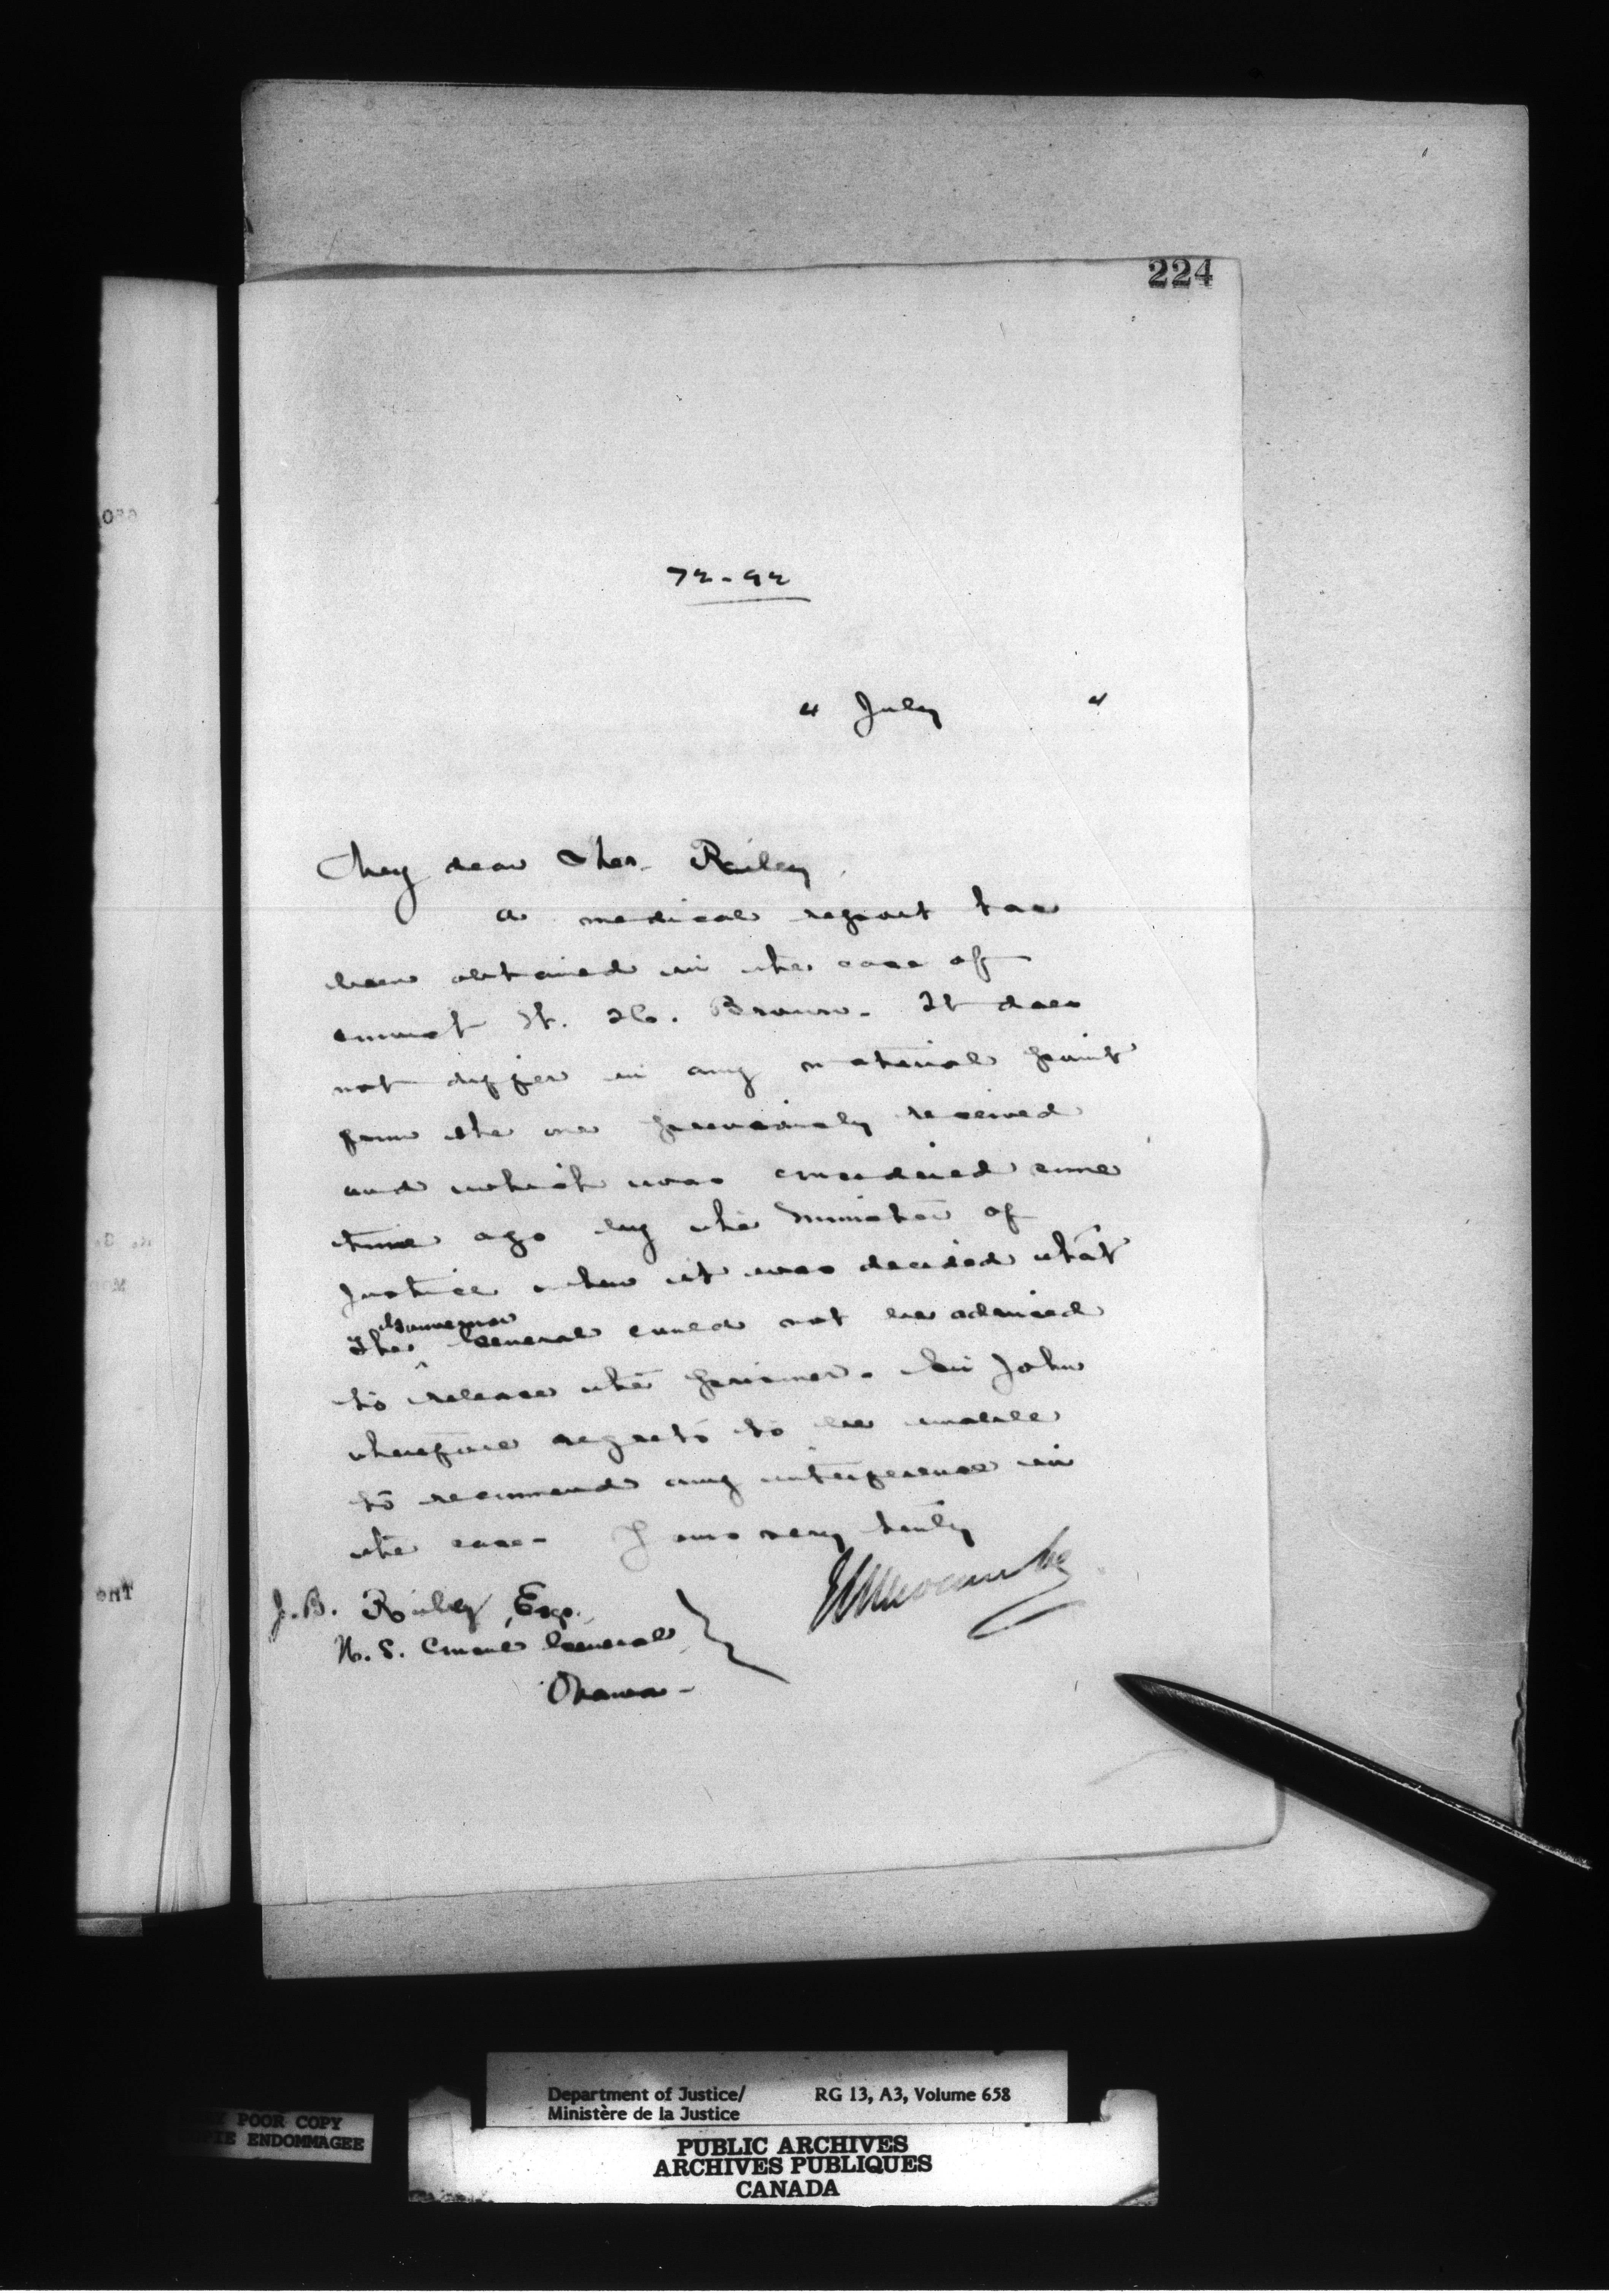 224
72-92
4 July 4
My dear Mr. Riley,
A medical report has
been obtained in the case of
convict H. Brown. It does
not differ in any material point
from the one previously received
and which was considered some
time ago by the Minister of
Justice when it was decided that
Governor
The ^ General could not be advised
to release the prisoner. Sir John
therefore regrets to be unable
to recommend any interference in
the case. I am very truly
J. B. Riley, Esq.,
U. S. Consul General,
Ottawa-
Department of Justice/
Ministère de la Justice
RG 13, A3, Volume 658
POOR COPY
ENDOMMAGEE
PUBLIC ARCHIVES
ARCHIVES PUBLIQUES
CANADA